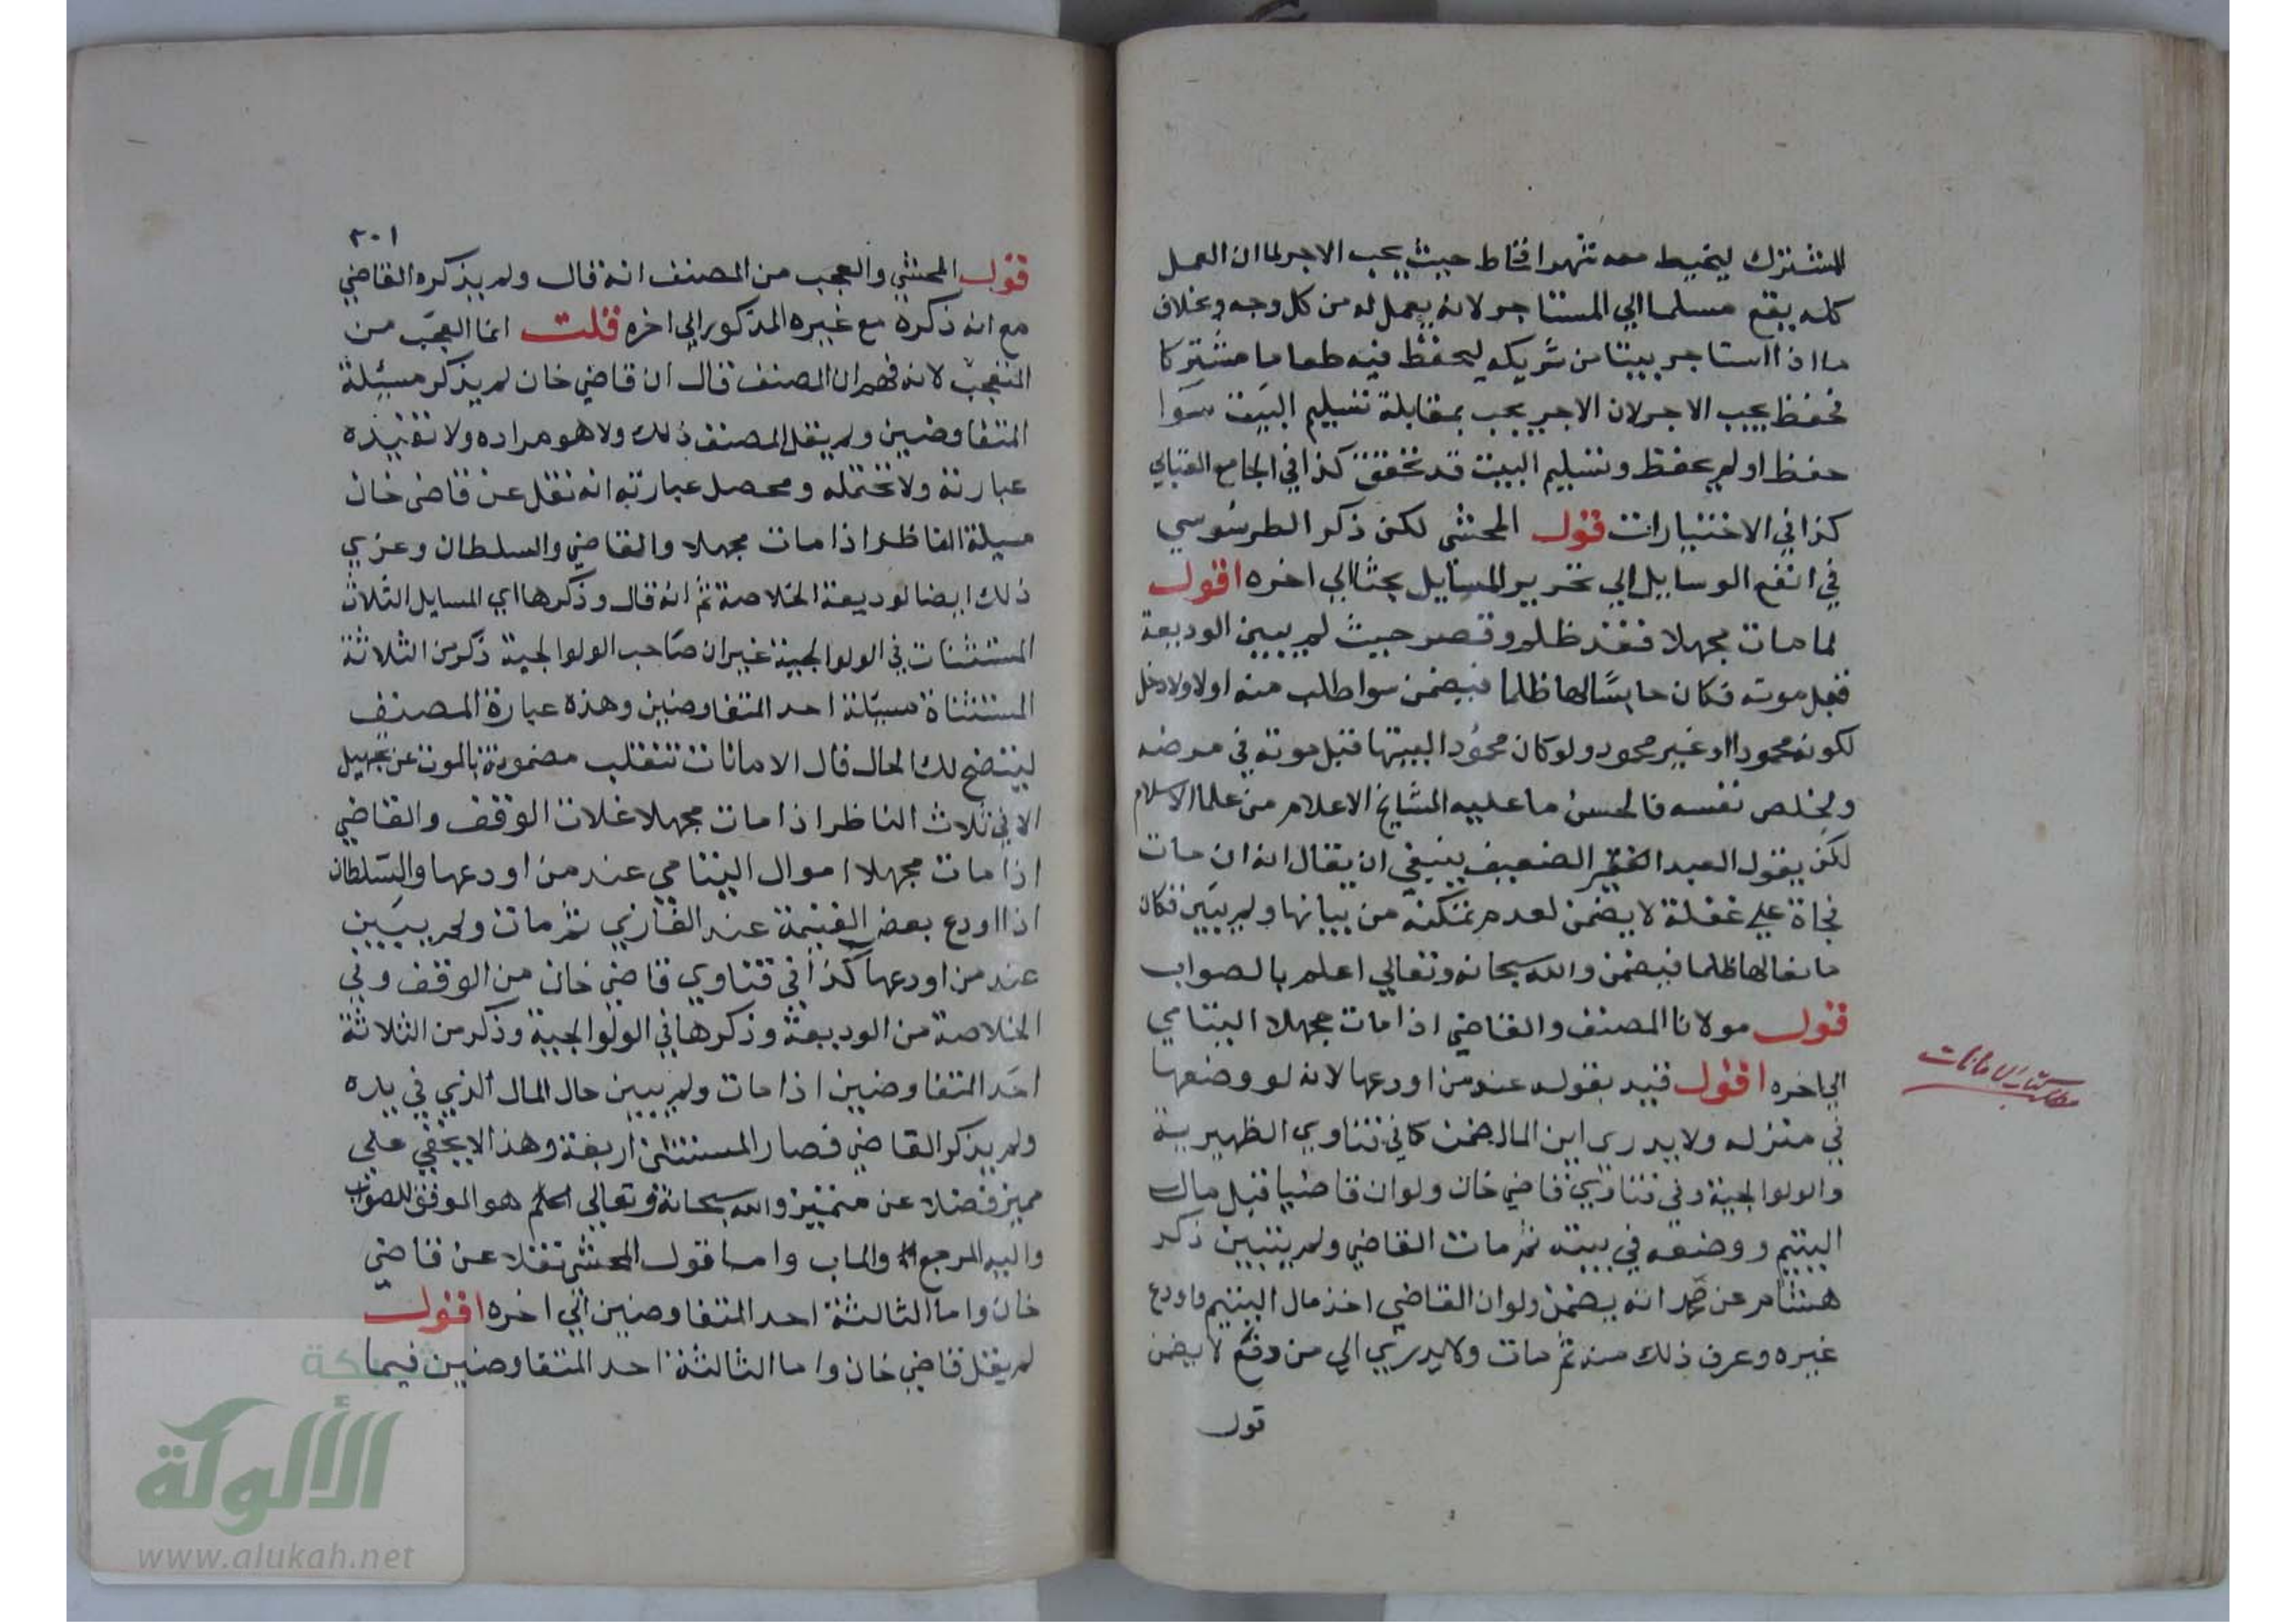 المشترك ليخيط معه شهرا فخاط حيث يجب الاجر لما ان العمل
كله يقع مسلما الي المستاجر لانه يعمل له من كل وجه وبخلاف
ما اذا استاجر بيتا من شريكه ليحفظ فيه طعاما مشتركا
فحفظ يجب الاجر لان الاجر يجب بمقابلة تسليم البيت سوا
حفظ او لم يحفظ وتسليم البيت قد تحقق كذا في الجامع العتابي
كذا في الاختيارات قول المحشي لكن ذكر الطرسوسي
في انفع الوسايل الي تحرير المسايل بحثا الي اخره اقول
لما مات مجهلا فقد ظلم وقصر حيث لم يبين الوديعة
قبل موته فكان حابسا لها ظلما فيضمن سوا طلب منه اولا ولا دخل
لكونه محمودا او غير محمود ولو كان محمودا لبيتها قبل موته في مرضه
وليخلص نفسه فالحسن ما عليه المشايخ الاعلام من علما الاسلام
لكن يقول العبد الفقير الضعيف ينبغي ان يقال انه ان مات
فجاة علي غفلة لا يضمن لعدم تمكنه من بيانها ولم يبين فكان
مانعا لها ظلما فيضمن والله سبحانه وتعالي اعلم بالصواب
قول مولانا المصنف والقاضي اذا مات مجهلا اليتامي
الي اخره اقول قيد بقوله عند من اودعها لانه لو وضعها
في منزله ولا يدري اين المال ضمن كما في فتاوي الظهيرية
والولوالجية وفي فتاوي قاضي خان ولو ان قاضيا قبل مال
اليتيم ووضعه في بيته ثم مات القاضي ولم يتبين ذكر
هشام عن محمد انه يضمن ولو ان القاضي اخذ مال اليتيم واودع
غيره وعرف ذلك منه ثم مات ولا يدري الي من دفع لا يضمن
قول
كتاب الامانات
٣٠١
قول المحشي والعجب من المصنف انه قال ولم يذكره القاضي
مع انه ذكره مع غيره المذكور الي اخره قلت انما العجب من
المتعجب لانه فهم ان المصنف قال ان قاضي خان لم يذكر مسيلة
المتفاوضين ولم يقل المصنف ذلك ولا هو مراده ولا تفيده
عبارته ولا تحتمله ومحصل عبارته انه نقل عن قاضي خان
مسيلة الناظر اذا مات مجهلا والقاضي والسلطان وعزي
ذلك ايضا لوديعة الخلاصة ثم انه قال وذكرها اي المسايل الثلاث
المستثنات في الولوالجية غير ان صاحب الولوالجية ذكر من الثلاثة
المستثناة مسيلة احد المتفاوضين وهذه عبارة المصنف
ليتضح لك الحال قال الامانات تنقلب مضمونة بالموت عن تجهيل
الا في ثلاث الناظر اذا مات مجهلا غلات الوقف والقاضي
اذا مات مجهلا اموال اليتامي عند من اودعها والسلطان
اذا اودع بعض الغنيمة عند الغازي ثم مات ولم يبين
عند من اودعها كذا في فتاوي قاضي خان من الوقف وفي
الخلاصة من الوديعة وذكرها في الولوالجية وذكر من الثلاثة
احد المتفاوضين اذا مات ولم يبين حال المال الذي في يده
ولم يذكر القاضي فصار المستثني اربعة وهذا لا يخفي علي
مميز فضلا عن متميز والله سبحانه وتعالي اعلم هو الموفق للصواب
واليه المرجع والماب واما قول المحشي نقلا عن قاضي
خان واما الثالثة احد المتفاوضين الي اخره اقول
لم يقل قاضي خان واما الثالثة احد المتفاوضين فيما
شبكة
الألوكة
www.alukah.net